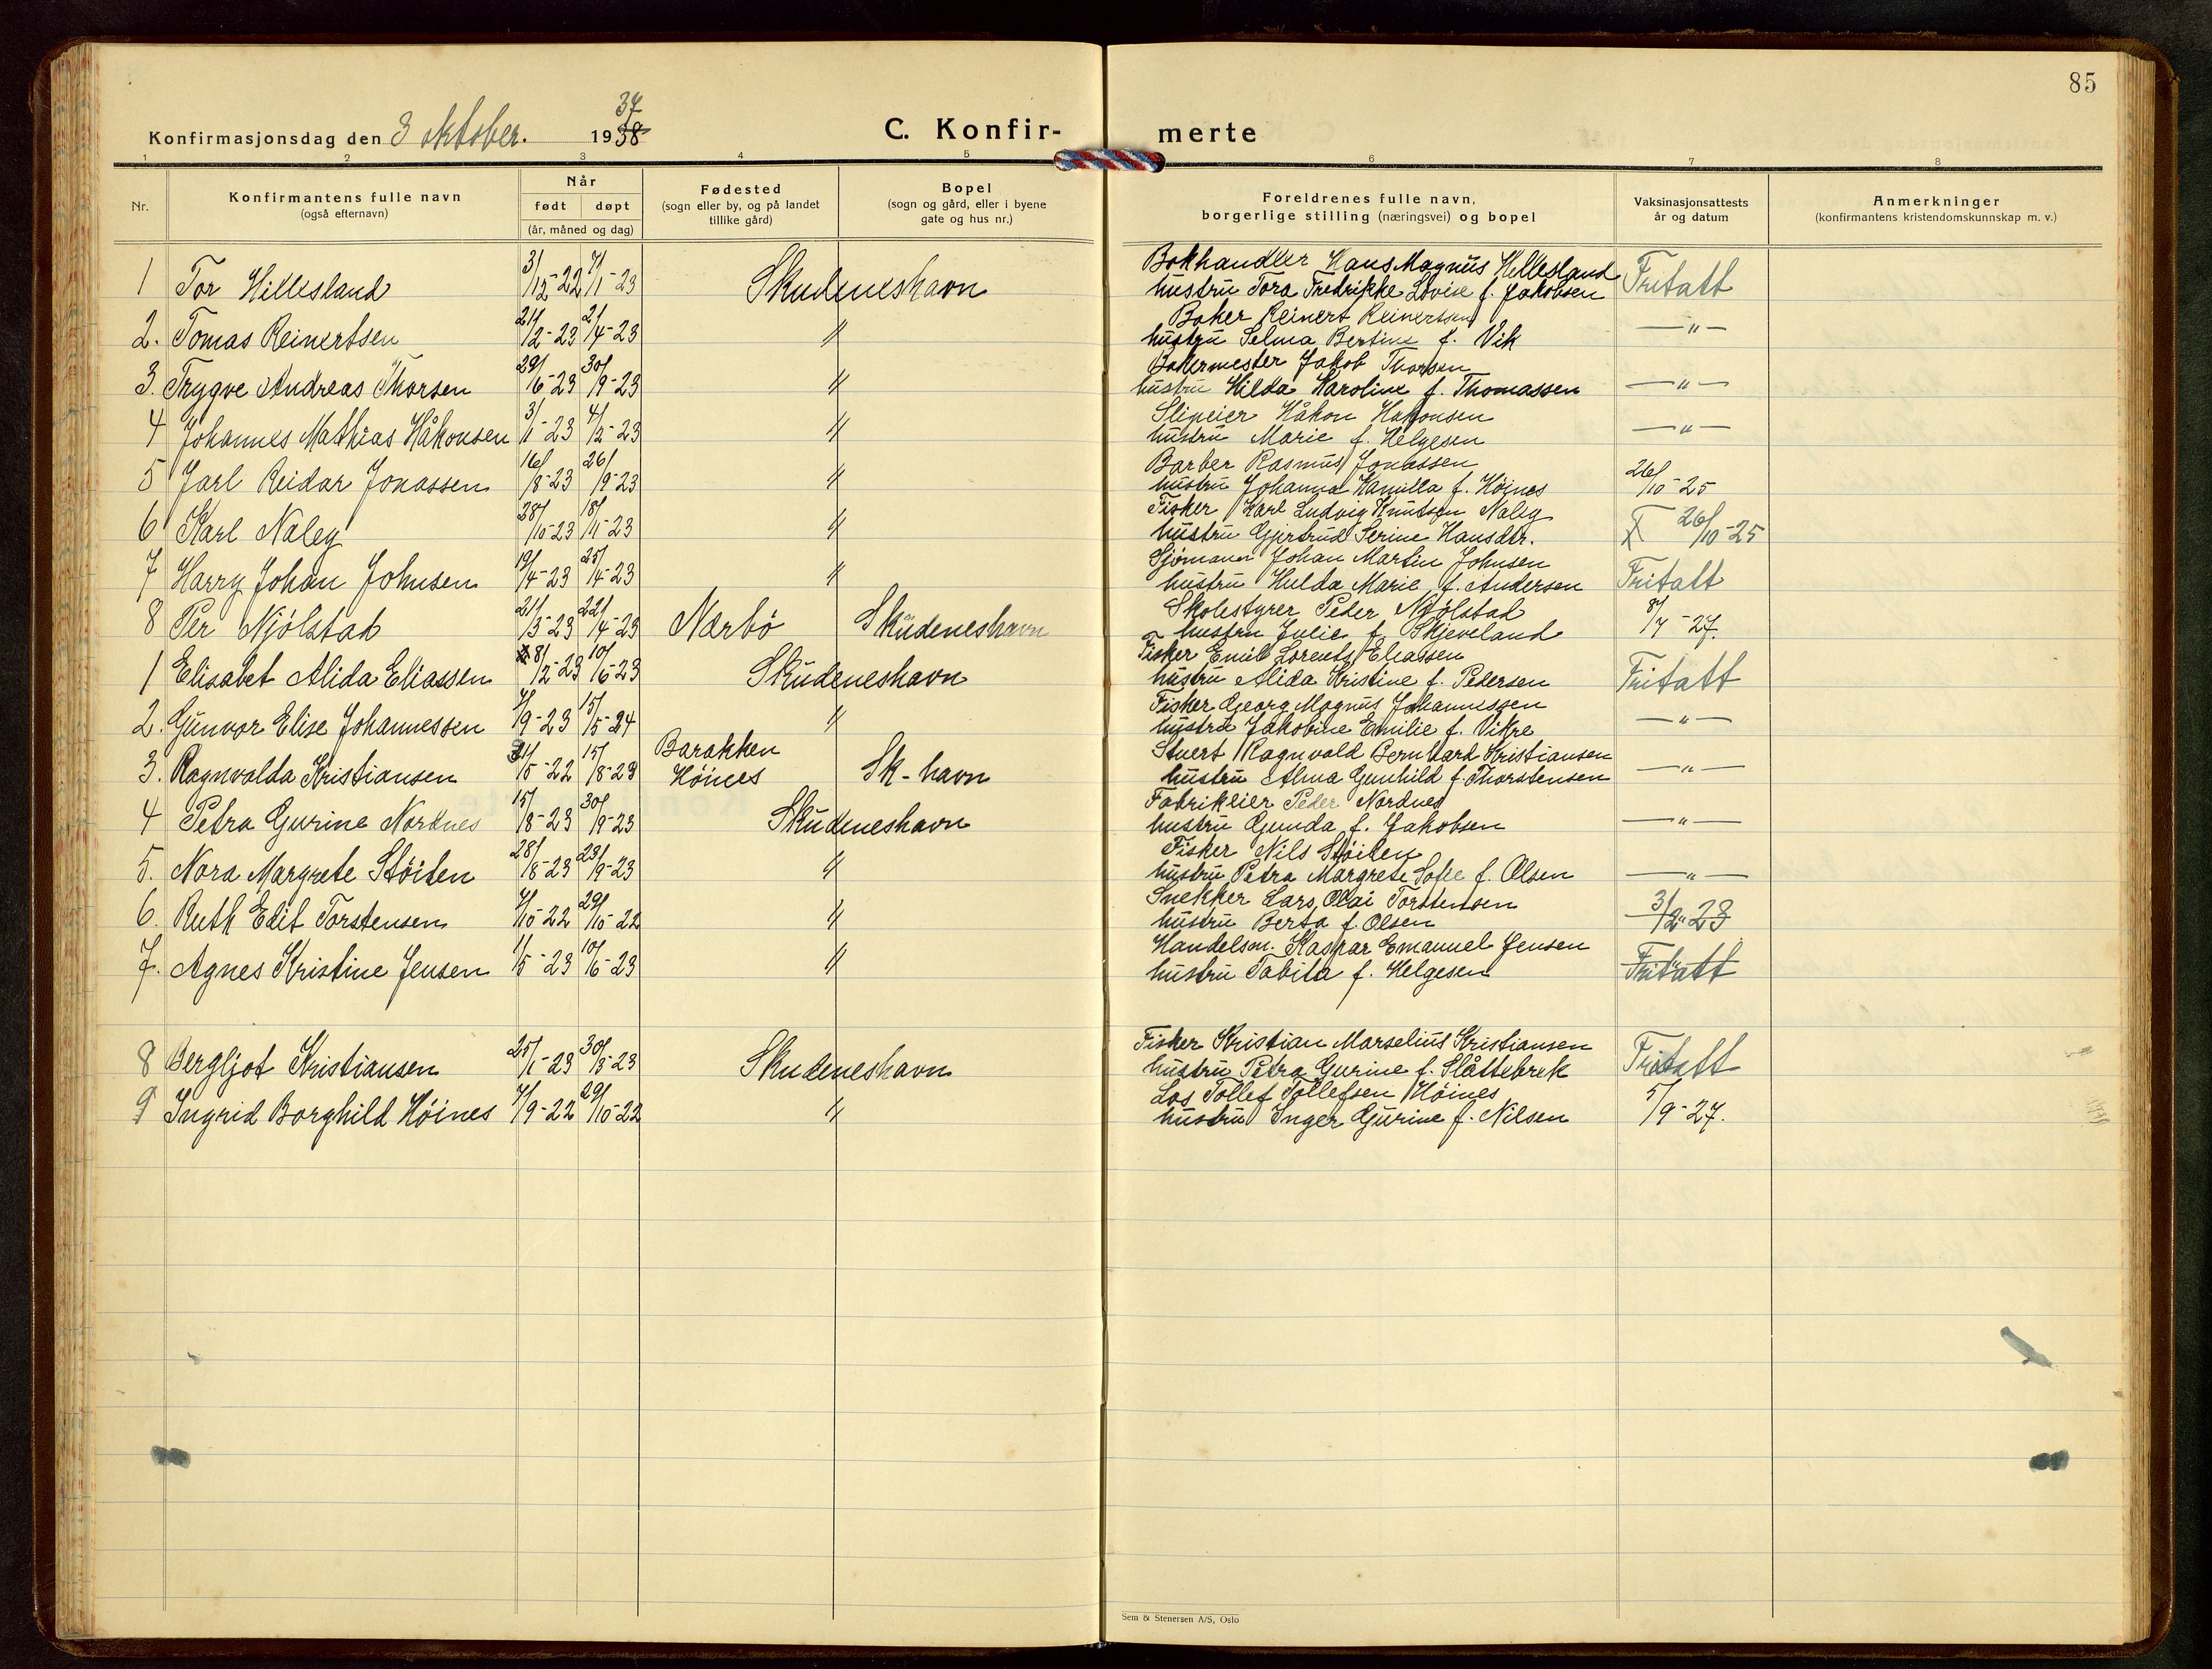 85
37
Konfirmasjonsdag den 3 oktober. 1938
C. Konfir- merte
1 2 3 4 5 6 7 8
Nr.
Konfirmantens fulle navn
(også efternavn)
Når
født døpt
(år, måned og dag)
Fødested
(sogn eller by, og på landet
tillike gård)
Bopel
(sogn og gård, eller i byene
gate og hus nr.)
Foreldrenes fulle navn,
borgerlige stilling (næringsvei) og bopel
Vaksinasjonsattests
år og datum
Anmerkninger
(konfirmantens kristendomskunnskap m. v.)
Bokhandler Hans Magnus Hillesland
1 Tor Hillesland 3/12-22 7/1-23 Skudeneshavn hustru Tora Fredrikke Lovise f. Jakobsen Fritatt
Baker Reinert Reinertsen
2. Tomas Reinertsen 21/2-23 2/4-23 〃 hustru Selma Bertine f. Vik —〃—
Bakermester Jakob Thorsen
3. Trygve Andreas Thorsen 29/6-23 30/9-23 〃 hustru Hilda Karoline f. Thomassen —〃—
Slipeier Håkon Håkonsen
4 Johannes Mathias Håkonsen 3/1-23 4/2-23 〃 hustru Marie f. Helgesen —〃—
Barber Rasmus Jonassen
5 Jarl Reidar Jonassen 16/8-23 26/9-23 〃 hustru Johanna Kamilla f. Høines 26/10-25
Fisker Karl Ludvig Knutsen Naley
6 Karl Naley 28/10-23 18/11-23 〃 hustru Gjertrud Serine Hansdtr. 26/10-25
Sjømann Johan Martin Johnsen
7 Harry Johan Johnsen 19/4-23 25/4-23 〃 hustru Hulda Marie f. Andersen Fritatt
Skolestyrer Peder Njølstad
8 Per Njølstad 21/3-23 22/4-23 Nærbø Skudeneshavn hustru Julie f. Skjeveland 8/7-27.
Fisker Emil Lorents Eliassen
1 Elisabet Alida Eliassen 8/2-23 10/6-23 Skudeneshavn hustru Alida Kristine f. Pedersen Fritatt
Fisker Georg Magnus Johannessen
2. Gunvor Elise Johannessen 4/9-23 15/5-24 〃 hustru Jakobine Emilie f. Vikre —〃—
Barakken Stuert Ragnvald Bernhard Kristiansen
3. Ragnvalda Kristiansen 31/5-22 15/8-23 Høines Sk-havn hustru Alma Gunhild f. Thorstensen —〃—
Fabrikeier Peder Nordnes
4 Petra Gurine Nordnes 15/8-23 30/9-23 Skudeneshavn hustru Gunda f. Jakobsen —〃—
Fisker Nils Støiten
5. Nora Margrete Støiten 28/8-23 23/9-23 〃 hustru Petra Margrete Sofie f. Olsen —〃—
Snekker Lars Olai Torstensen
6. Ruth Edit Torstensen 4/10-22 29/10-22 〃 hustru Berta f. Olsen 3/2-28
Handelsm. Kaspar Emanuel Jensen
7. Agnes Kristine Jensen 1/5-23 10/6-23 〃 hustru Tabita f. Helgesen Fritatt
Fisker Kristian Marselius Kristiansen
8 Bergljot Kristiansen 25/1-23 30/3-23 Skudeneshavn hustru Petra Gurine f. Slåttebrek Fritatt
Los Tollef Tollefsen Høines
9 Ingrid Borghild Høines 7/9-22 29/10-22 〃 hustru Inger Gurine f. Nilsen 5/9-27.
Sem & Stenersen A/S, Oslo